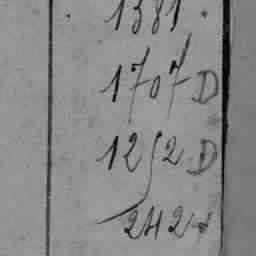 1381.
1707 D
1252 D
242